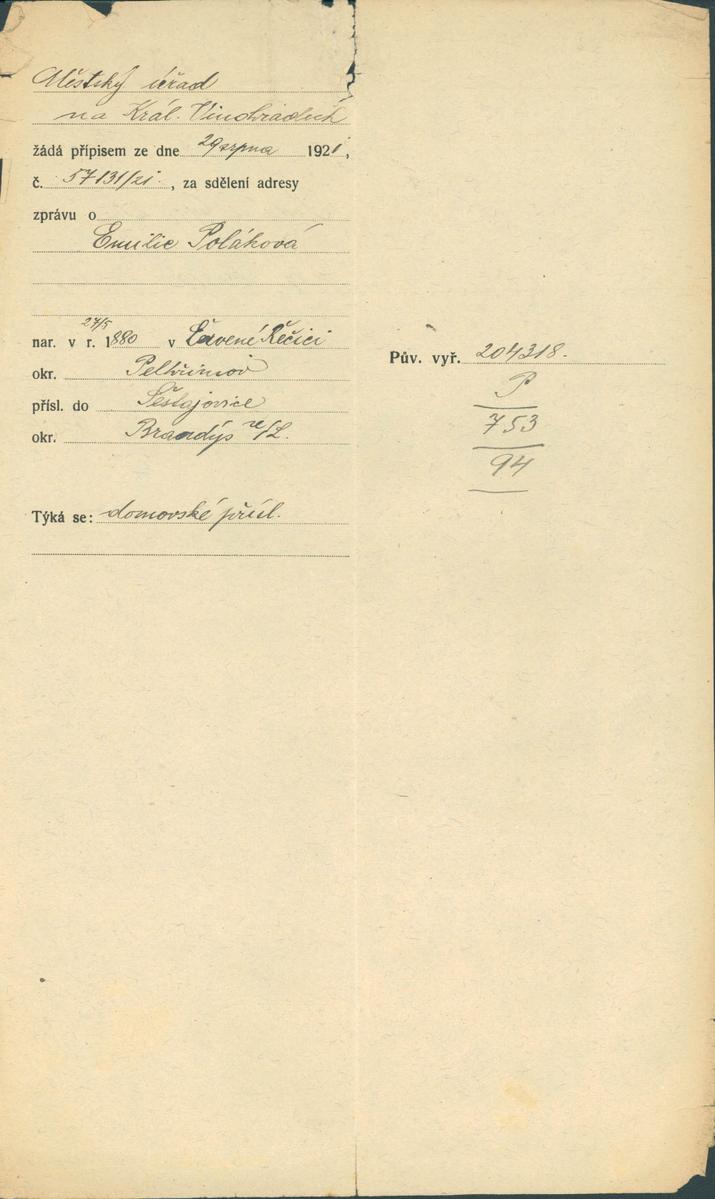 Městský úřad
na Král. Vinohradech
žádá přípisem ze dne 29 srpna 1921,
č. 57131/21., za sdělení adresy
zprávu o
Emilie Poláková
24/5
nar. v r. 1880 v Červené Řečici
okr. Pelhřimov
přísl. do Šestajovice
okr. Brandýs n/L.
Týká se: domovské přísl.
Pův. vyř. 204318.
P
753
94